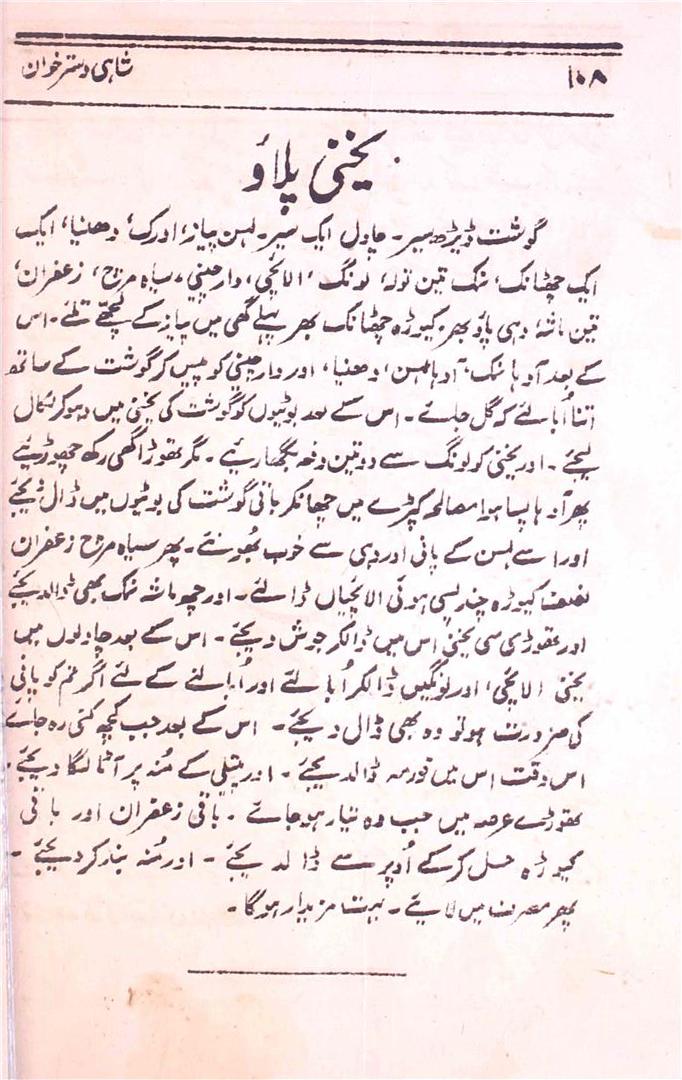 ۱۰۸ شاہی دسترخوان
یخنی پلاؤ
گوشت ڈیڑھ سیر۔ چاول ایک سیر۔ لہسن پیاز، ادرک، دھنیا، ایک
ایک چھٹانک، نمک تین تولہ، لونگ، الائچی، دارچینی، سیاہ مرچ، زعفران،
تین ماشہ، دہی پاؤ بھر۔ کیوڑہ چھٹانک بھر پہلے گھی میں پیاز کے لچھے تلئے۔ اس
کے بعد آدہا نمک، آدہا لہسن، دھنیا، اور دارچینی کو پیس کر گوشت کے ساتھ
اتنا اُبالئے کہ گل جائے۔ اس کے بعد بوٹیوں کو گوشت کی یخنی میں دہو کر نکال
لیجئے۔ اور یخنی کو لونگ سے دو تین دفعہ بگھاریئے۔ مگر تھوڑا گھی رکھ چھوڑیئے
پھر آدہا پسا ہوا مصالحہ کپڑے میں چھانکر باقی گوشت کی بوٹیوں میں ڈال دیجئے
اور اسے لہسن کے پانی اور دہی سے خوب بھُونئے۔ پھر سیاہ مرچ زعفران
نصف کیوڑہ چند پسی ہوئی الائچیاں ڈالئے۔ اور چھ ماشہ نمک بھی ڈالدیجئے
اور تھوڑی سی یخنی اس میں ڈالکر جوش دیجئے۔ اس کے بعد چاولوں میں
یخنی الائچی، اور لونگیں ڈالکر اُبالئے اور اُبالنے کے لئے اگر تم کو پانی
کی ضرورت ہو تو وہ بھی ڈال دیجئے۔ اس کے بعد جب کچھ کنی رہ جائے
اس وقت اس میں قورمہ ڈالدیجئے۔ اور پتیلی کے مُنہ پر آٹا لگا دیجئے۔
تھوڑے عرصہ میں جب وہ تیار ہو جائے۔ باقی زعفران اور باقی
کیوڑہ حل کر کے اُوپر سے ڈالدیجئے۔ اور مُنہ بند کر دیجئے۔
پھر مصرف میں لایئے۔ بہت مزیدار ہوگا۔